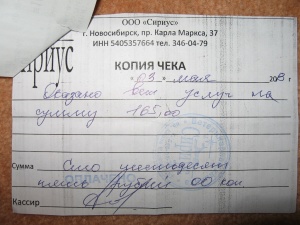 ООО «Сириус»
г. Новосибирск, пр. Карла Маркса, 37
ИНН 5405357664 тел. 346-04-79
ириус
КОПИЯ ЧЕКА
"03" мая 20 г.
Оказано услуг на
сумму 165,00
Сумма Сто шестьдесят
пять рублей 00 коп.
Кассир